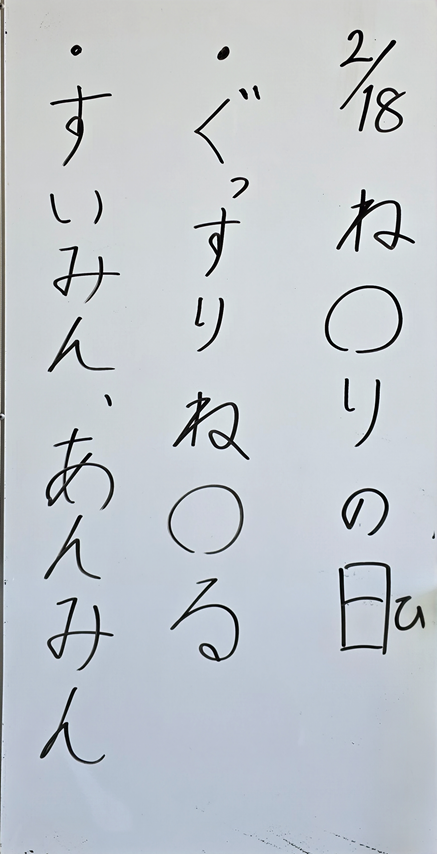 2/18 ね〇りの日ひ
・ぐっすりね〇る
・すいみん、あんみん